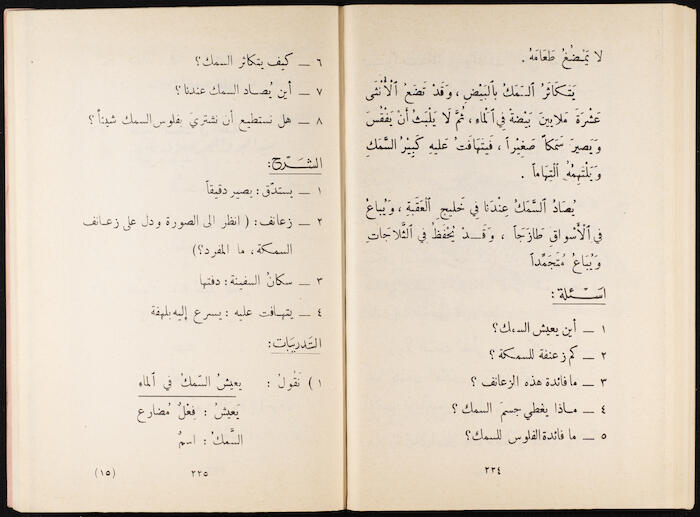 لا يَمْضُغُ طَعَامَهُ .
يَتَكَاثَرُ السَمَكُ بِالْبَيْضِ ، وَقَدْ تَضَعُ الْأُنْثَى
عَشْرَةَ مَلايينَ بَيْضَةٍ فِي الْمَاءِ ، ثُمَّ لَا يَلْبَثُ أَنْ يَفْقُسَ
وَيَصِيرَ سَمَكاً صَغِيْراً ، فَيَتَهَافَتُ عَليهِ كَبِيْرُ السَّمَكِ
وَيَلْتَهِمُهُ الْتِهَاماً .
يُصَادُ السَّمَكُ عِنْدَنا فِي خَليجِ الْعَقَبَةِ ، وَيُباعُ
فِي الْأَسْواقِ طَازَجاً ، وَقَـدْ يُحْفَظُ فِي الثَّلاجَاتِ
وَيُبَاعُ مُتَجَمِّداً
اسْئلة :
١ ــ أين يعيش السمك ؟
٢ ــ كم زعنفة للسمكة ؟
٣ ــ ما فائدة هذه الزعانف ؟
٤ ــ مـاذا يغطي جسمَ السمك ؟
٥ ــ ما فائدة الفلوس للسمك ؟
٢٢٤
٦ ــ كيف يتكاثر السمك ؟
٧ ــ أين يُصـاد السمك عندنا ؟
٨ ــ هل نستطيع أن نشتريَ بفلوس السمك شيئاً ؟
الشـرح :
١ ــ يستدّق : يصير دقيقاً
٢ ــ زعانف : ( انظر الى الصورة ودل على زعـانف
السمكة ، ما المفرد ؟ )
٣ ــ سكانُ السفينة : دفتها
٤ ــ يتهـافت عليه : يسرع إليه بلهفة
التدريبَات :
١ ) نَقُولُ : يعيشُ السّمكُ في الماءِ
يَعيشُ : فِعْلٌ مُضارع
السَّمَكُ : اسمٌ
٢٢٥
(١٥)